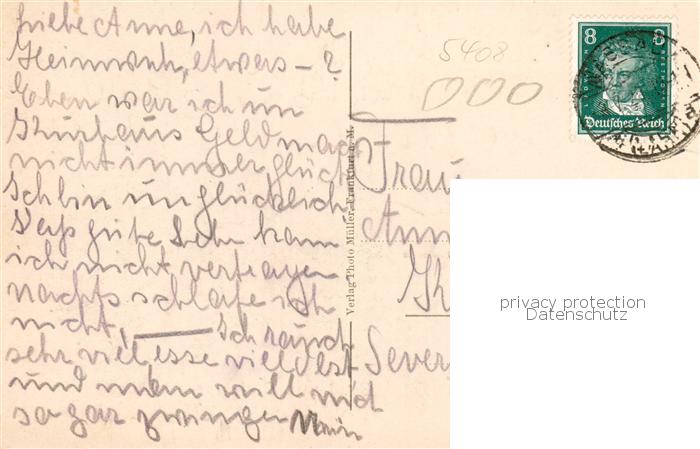 Liebe Anne, ich habe
Heimweh, etwas – ?
Eben war ich im
Kurhaus Geld mach
nicht immer glückl
Ich bin unglücklich
Das gute Leben kann
ich nicht vertragen
nachts schlafe ich
nicht, — Ich rauch
sehr viel esse viel
und man will mich
sogar zwingen
Verlag Photo Müller, Frankfurt a. M.
5408
8 8
BEETHOVEN
Deutsches Reich
Frau
Ann
K
Sever
privacy protection
Datenschutz